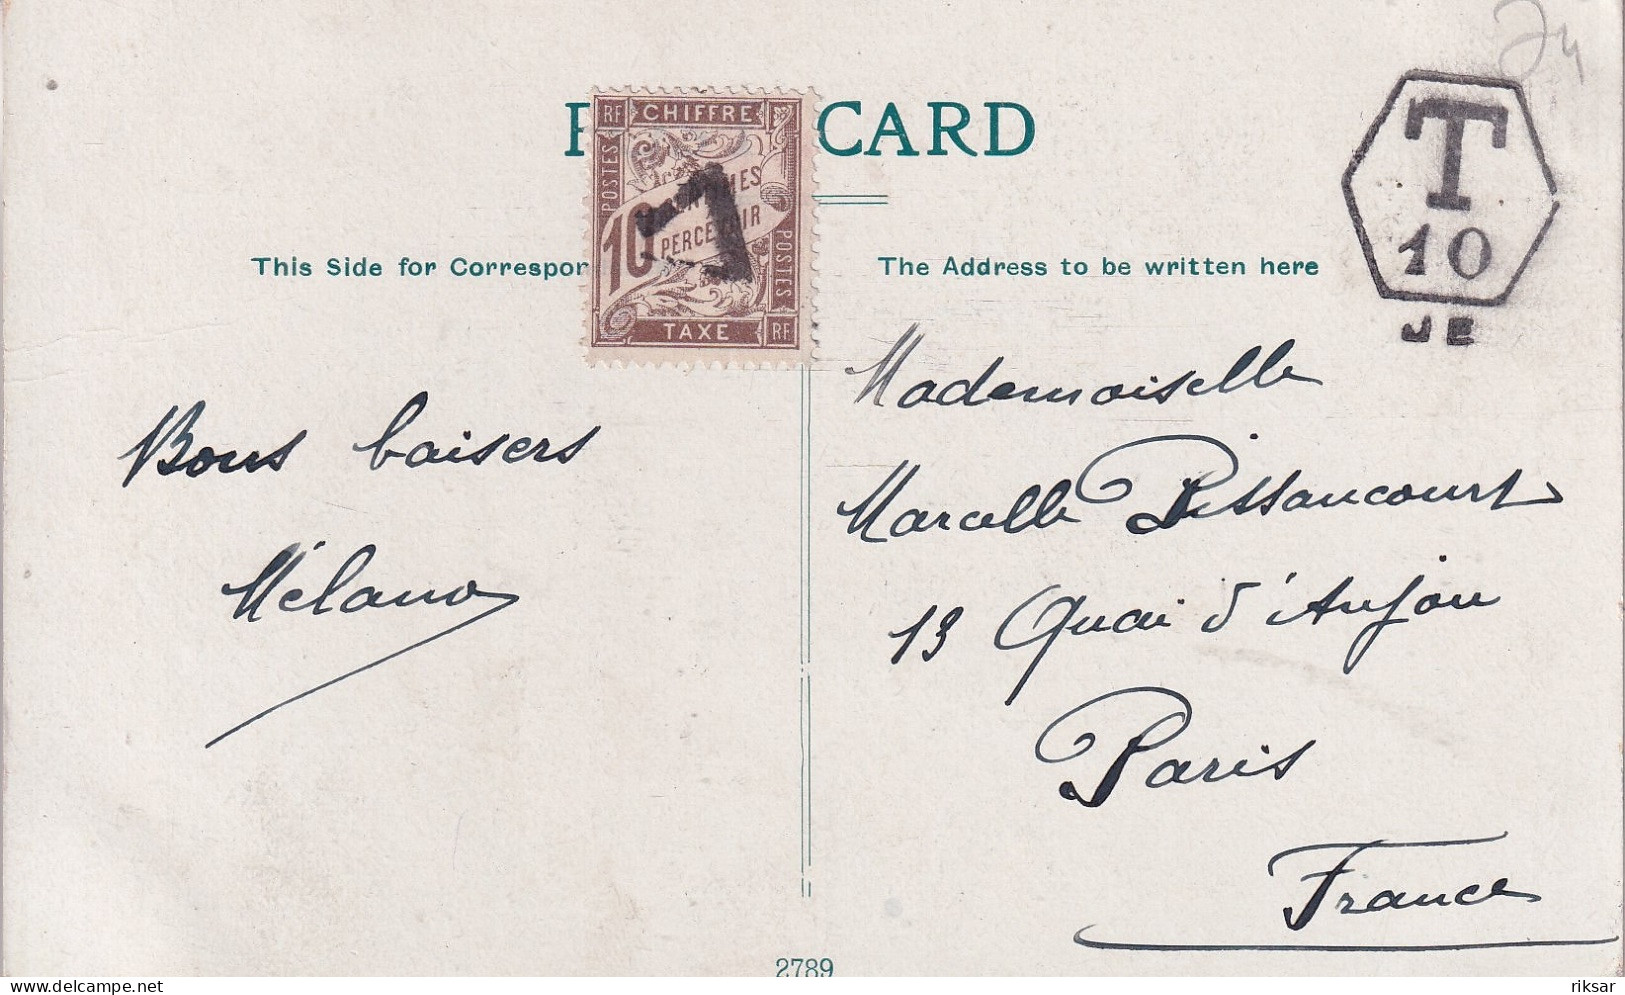 POST CARD
RF CHIFFRE
POSTES
10 CENTIMES
PERCEVOIR
POSTES
TAXE RF
T
10
JE
This Side for Correspon
The Address to be written here
Bons baisers
Mélano
Mademoiselle
Marcelle Pissancourt
13 Quai d'Anjou
Paris
France
2789
delcampe.net
riksar